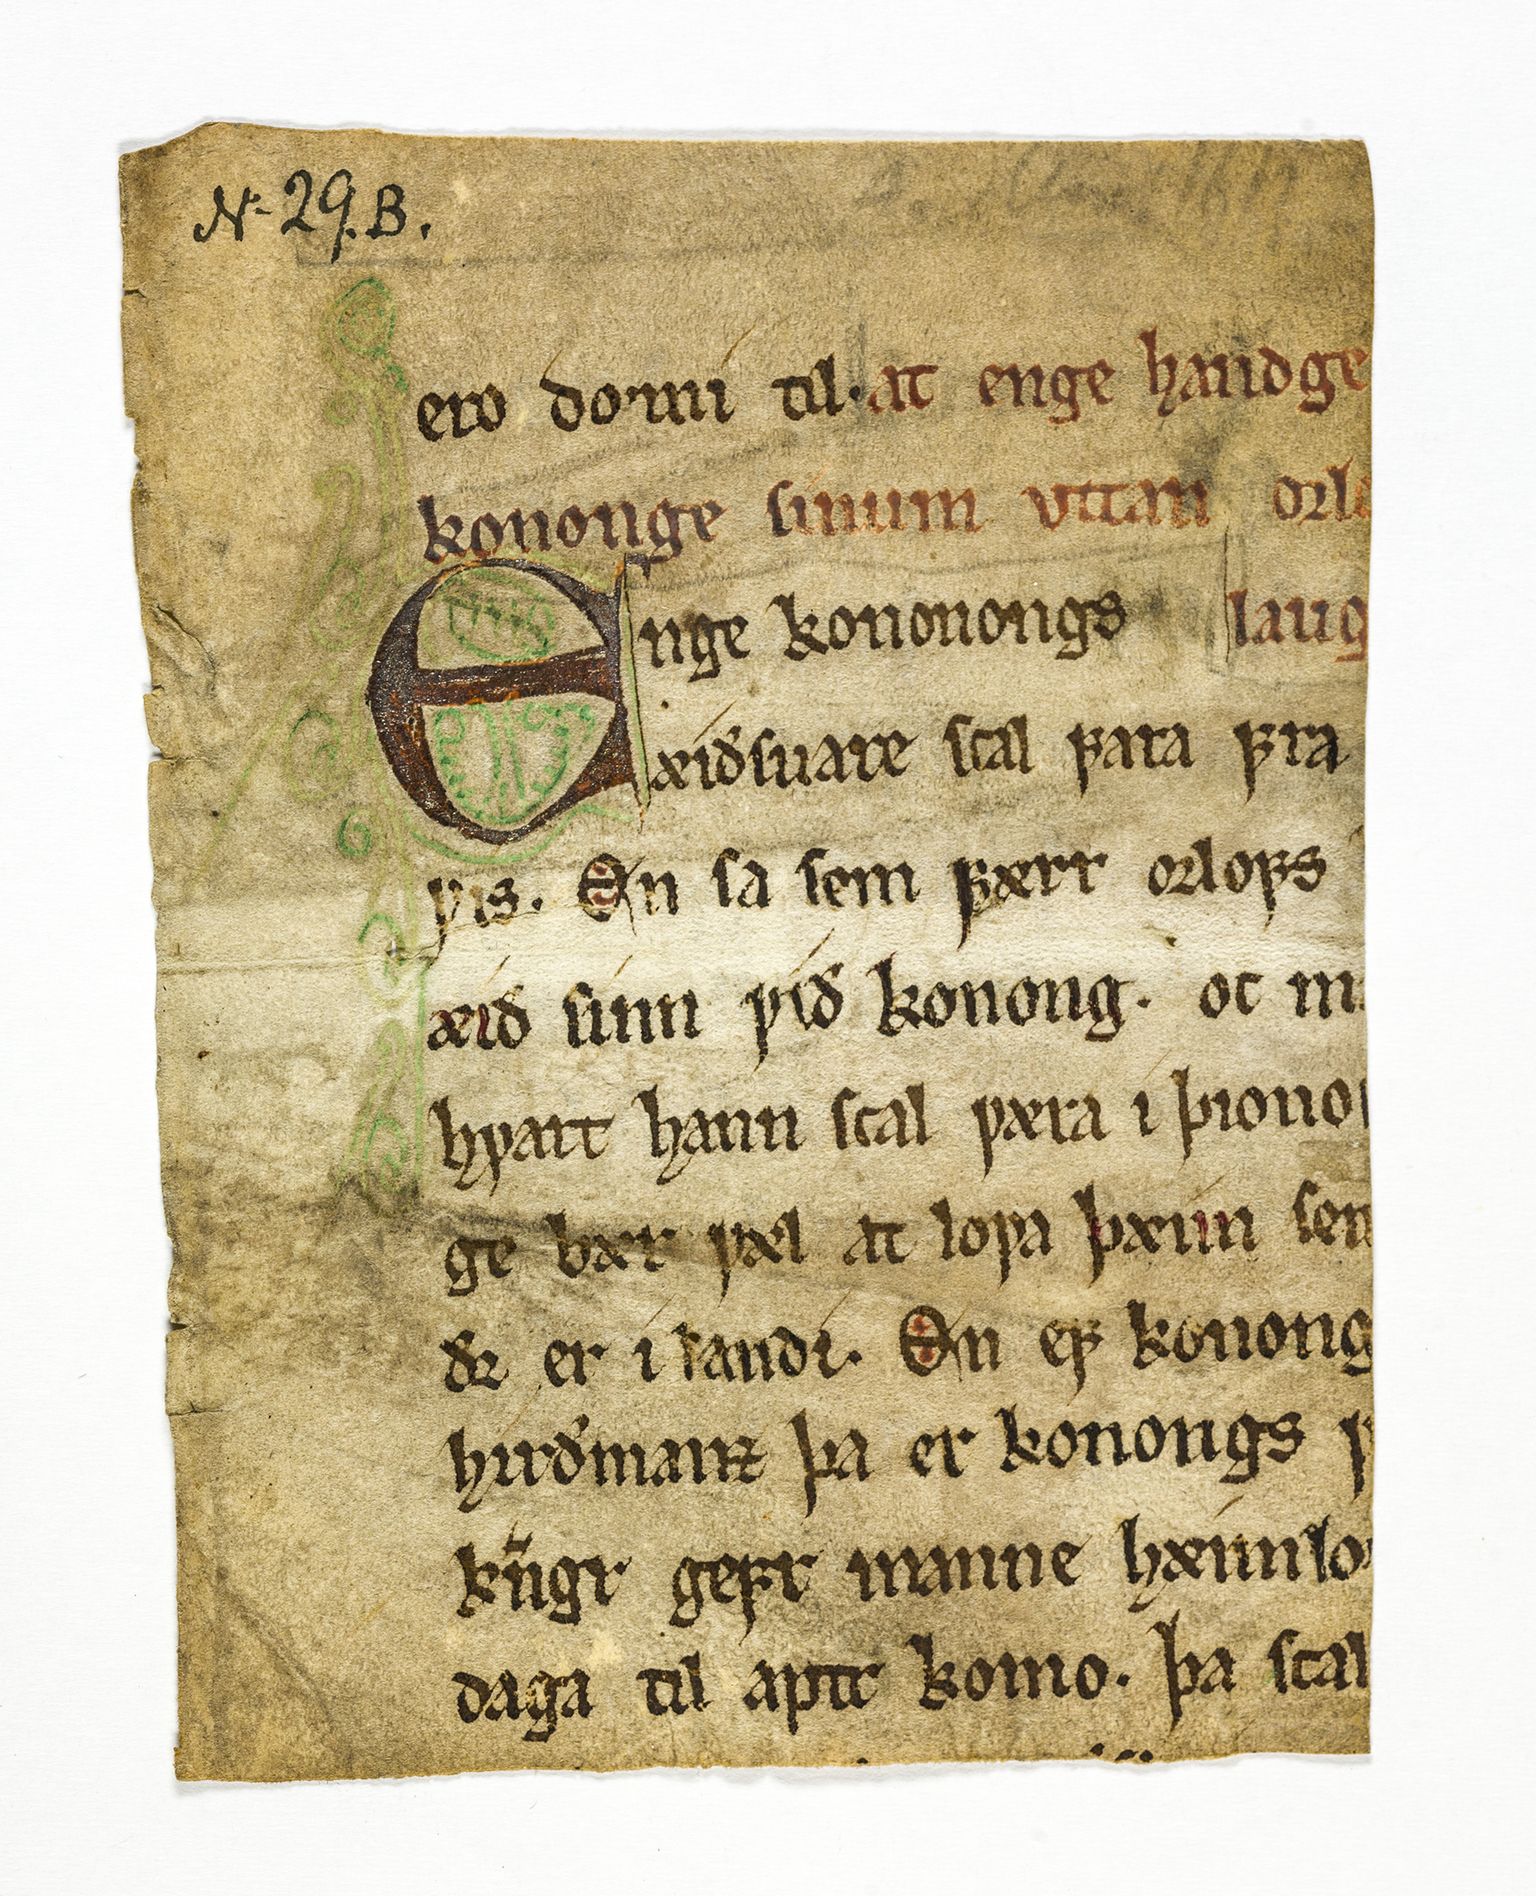 No 29. B.
ero domí til. at enge handge
kononge sinum vttan orlo
Enge konongs laug
æiðsuare scal fara fra
ꝩis. En sa sem færr orlofs
æið sinn ꝩið konong. oc m
hꝩart hann scal ꝩæra i þiono
ge bær ꝩæl at loꝩa þæim sem
ðꝛ er i landi. En ef konong
hirðmanz þa er konongs
kn̄gr gefr manne hæimlo
daga til aptr komo. þa scal